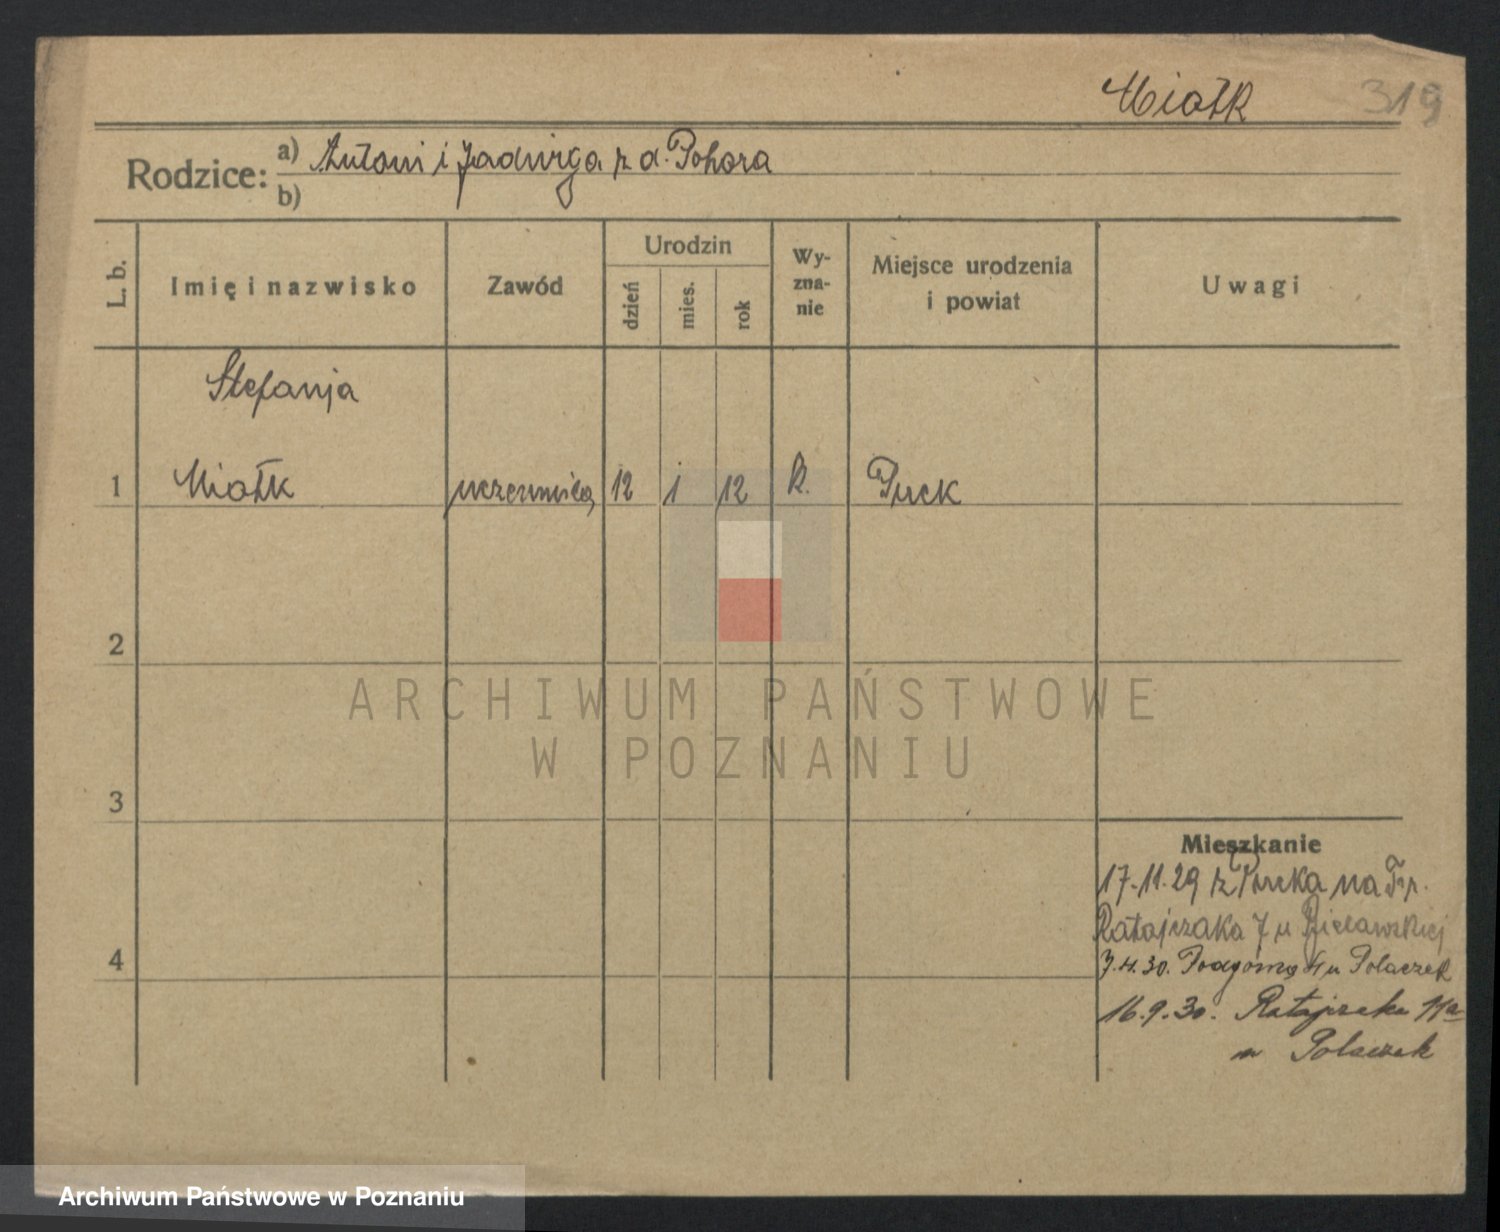 Miotk 319
Rodzice: a) Antoni i Jadwiga z d. Pohora
b)
L. b.
Imię i nazwisko
Zawód
Urodzin
dzień
mies.
rok
Wy-
zna-
nie
Miejsce urodzenia
i powiat
Uwagi
Stefanja
1 Miotk uczennica 12 1 12 R. Puck
2
ARCHIWUM PAŃSTWOWE
W POZNANIU
3
Mieszkanie
17-11-29 z Pucka na Fr.
Ratajczaka 7 u Bielawskiej
4
7.4.30. Podgórna 4 u Polaczek
16.9.30. Ratajczaka 11a
u Polaczek
Archiwum Państwowe w Poznaniu